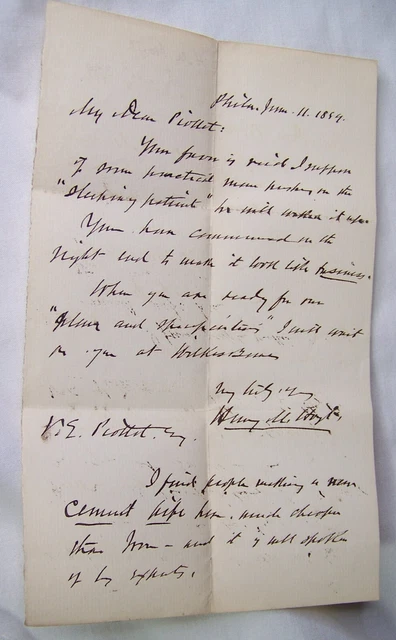 Phila. Jan. 11. 1889.
My Dear Piollet:
Your favor is rec'd I suppose
if some practical man pushes on the
"Sleeping patient" he will waken it up
You have commenced on the
right end to make it look like business.
When you are ready for our
"plans and specifications" I will wait
on you at Wilkes Barre
Very truly yrs,
Henry M. Hoyt
V. E. Piollet. Esq.
I find people making a new
cement pipe here, much cheaper
than Iron - and it is well spoken
of by experts.